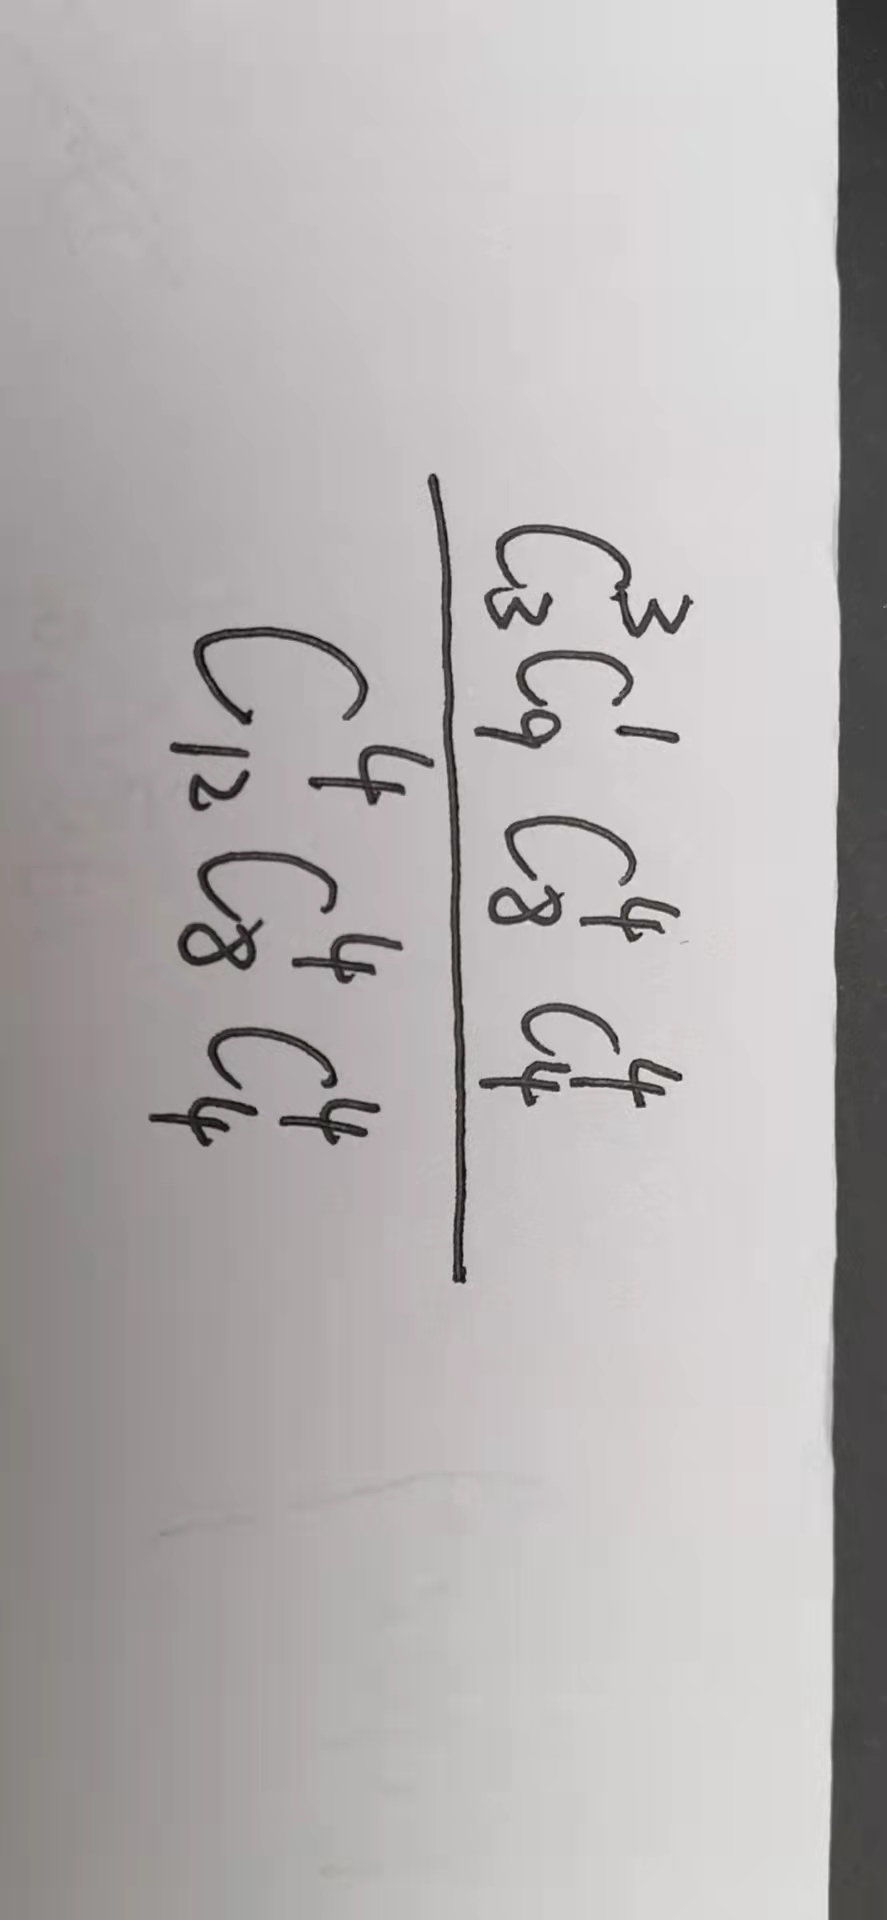 C₃³ C₉¹ C₈⁴ C₄⁴
C₁₂⁴ C₈⁴ C₄⁴